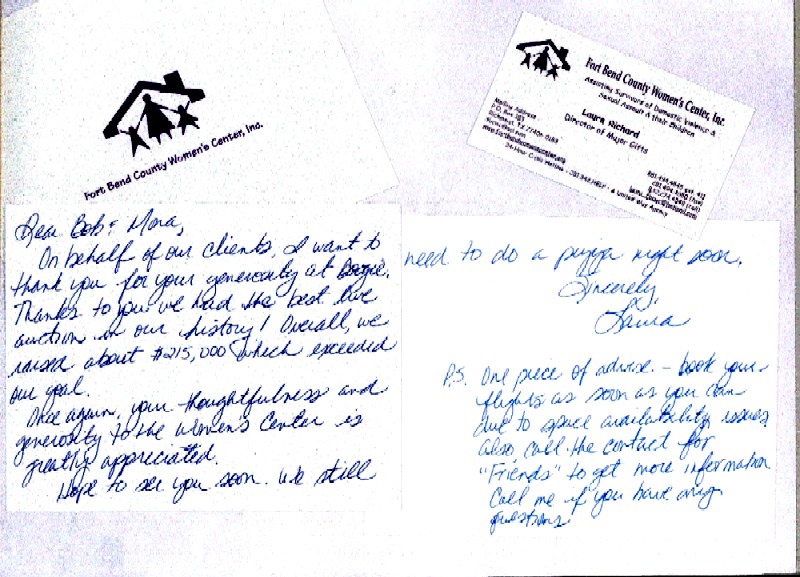 Fort Bend County Women's Center, Inc.
Fort Bend County Women's Center, Inc.
Assisting Survivors of Domestic Violence &
Sexual Assault & their Children
Laura Richard
Director of Major Gifts
Mailing Address
P.O. Box 183
Richmond, TX 77406-0183
24-Hour Crisis Hotline - 281-342-HELP - a United Way Agency
Dear Bob & Mona,
On behalf of our clients, I want to
thank you for your generosity at Boogie.
Thanks to you we had the best live
auction in our history! Overall, we
raised about $215,000 which exceeded
our goal.
Once again, your thoughtfulness and
generosity to the Women's Center is
greatly appreciated.
Hope to see you soon. We still
need to do a pizza night soon.
Sincerely,
Laura
P.S. One piece of advise - book your
flights as soon as you can
due to space availability issues
also call the contact for
"Friends" to get more information
Call me if you have any
questions